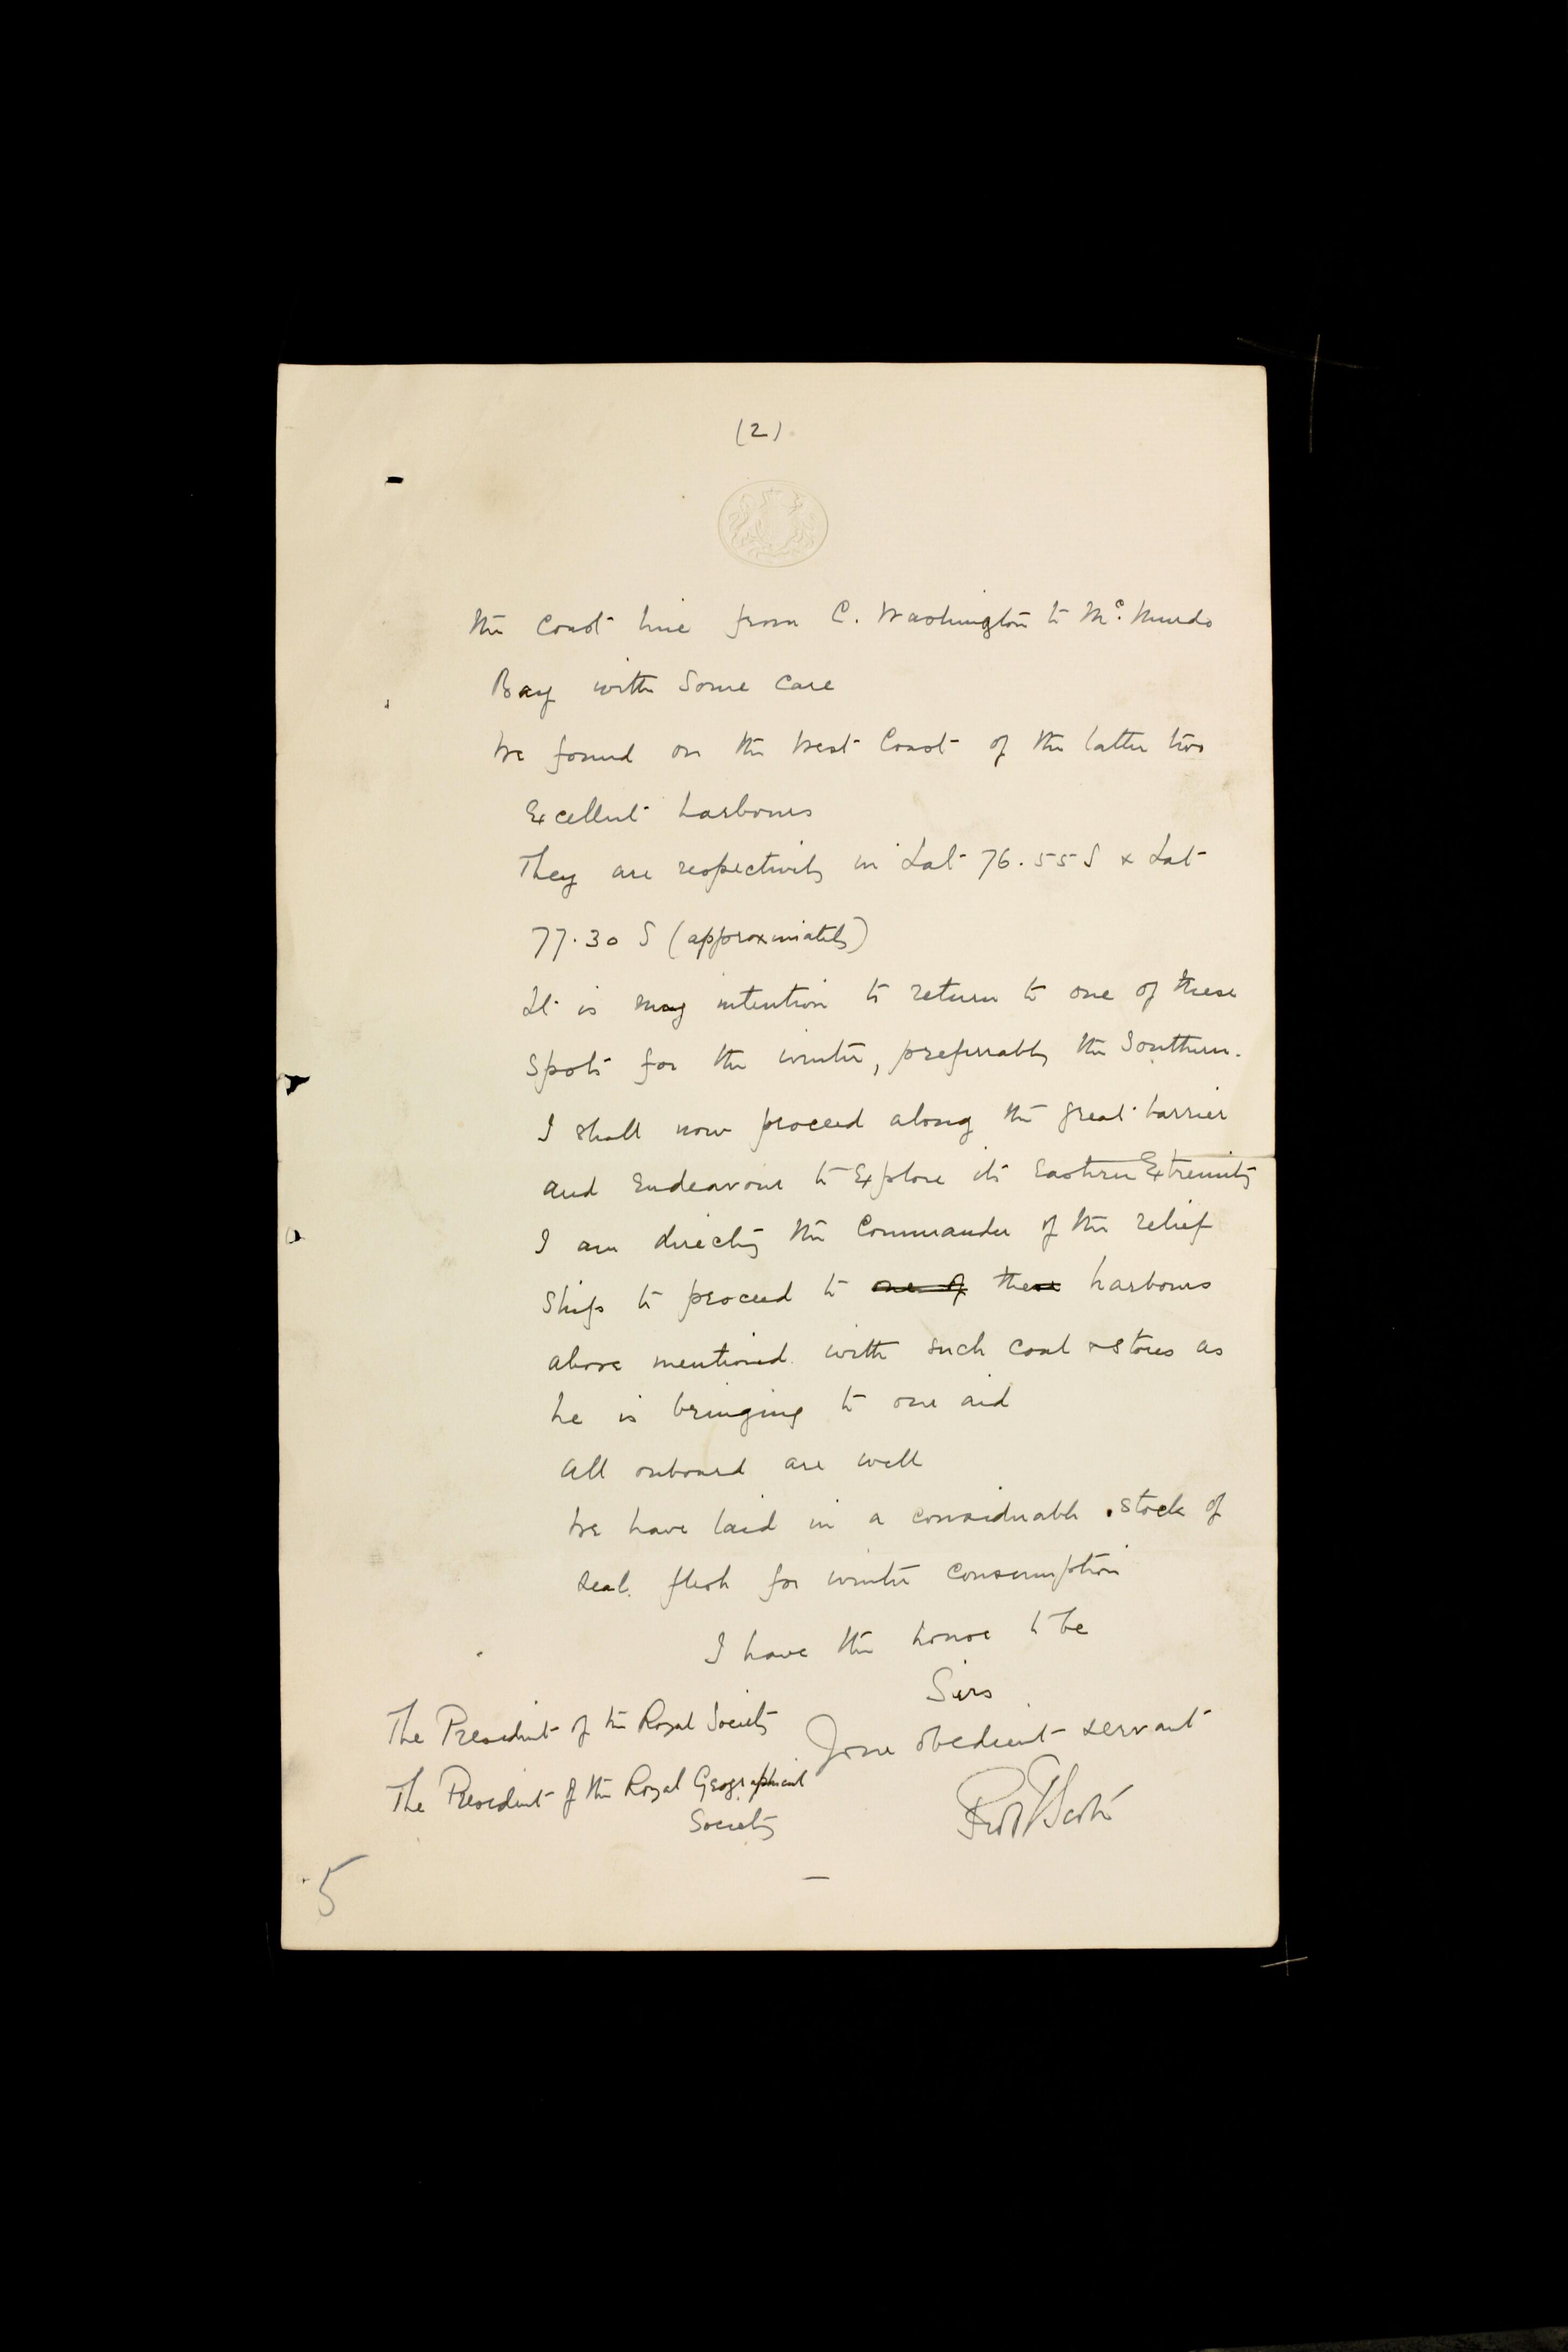 (2)
the Coast line from C. Washington to Mc. Murdo
Bay with some care
We found on the West Coast of the latter two
Excellent harbours
They are respectively in Lat 76.55 S & Lat
77.30 S (approximately)
It is my intention to return to one of these
Spots for the winter, preferrably the Southern.
I shall now proceed along the great barrier
and Endeavour to Explore its Eastern Extremity
I am directing the Commander of the relief
Ships to proceed to one of these harbours
above mentioned with such coal & stores as
he is bringing to our aid
All onboard are well
We have laid in a considerable stock of
Seal flesh for winter consumption
I have the honor to be
Sirs
Your obedient servant
The President of the Royal Society
The President of the Royal Geographical
Society
5